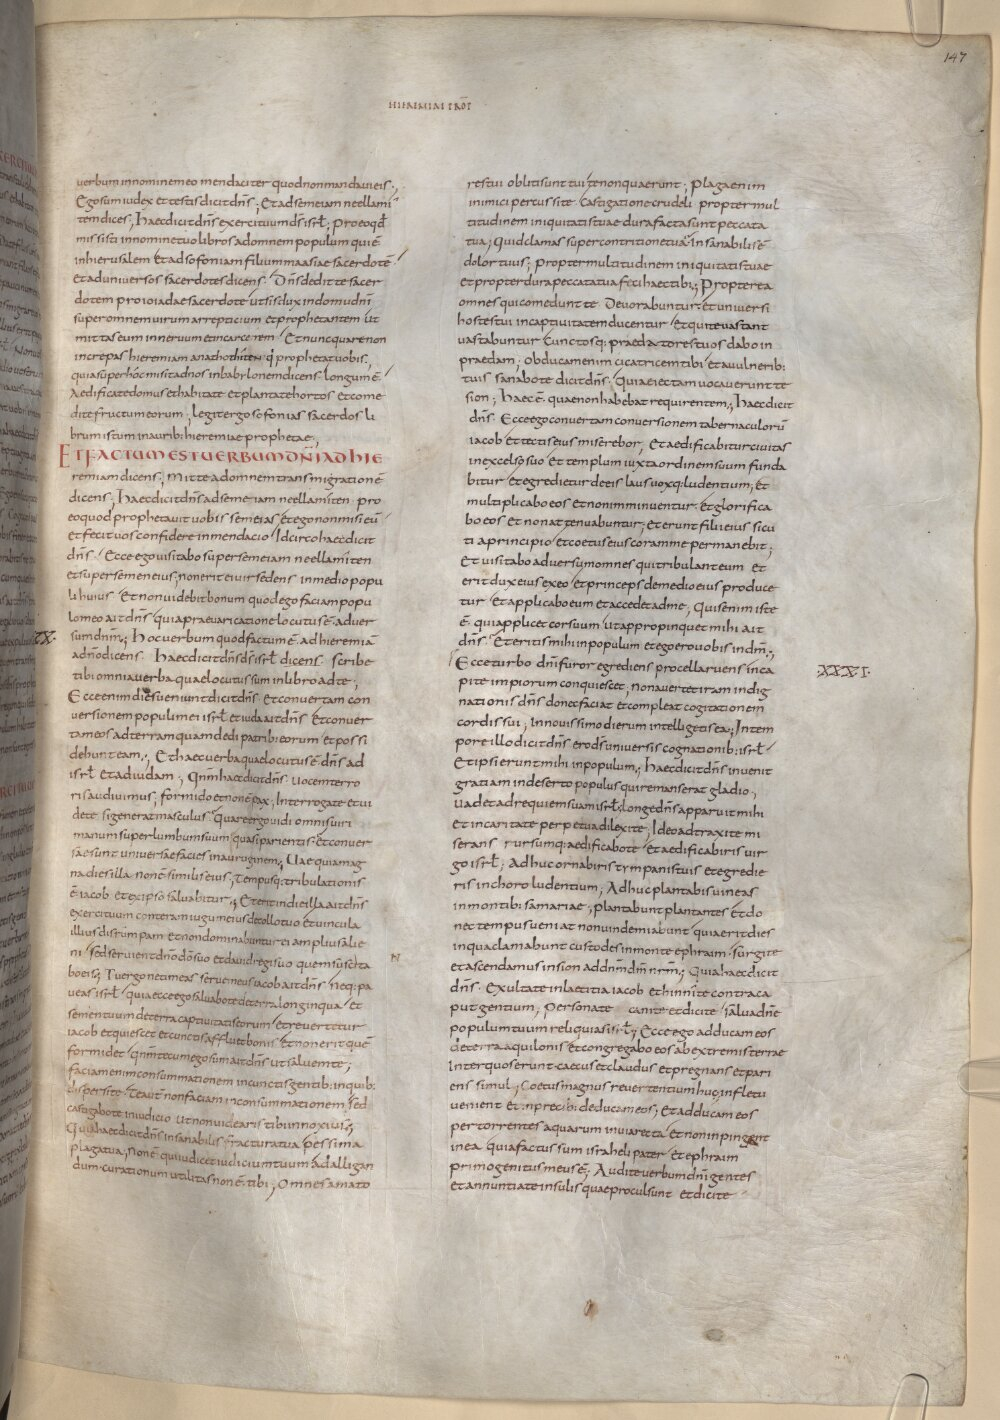 147
HIEREMIAE PROF̄
uerbum innomine meo mendaciter quod nonmandauieis.,
Egosum iudex et testis dicit dn̄s ; Et adsemeiam neellami
tem dices ; haec dicit dn̄s exercituum ds̄ isrl̄ ; Pro eo qd̄
missisti innomine tuo libros adomnem populum qui ē
inhierusalem Et adsofoniam filium maasiae sacerdotē
et aduniuersos sacerdotes dicens ; Dn̄s dedit te sacer
dotem pro ioiadae sacerdote utsis dux indomu dn̄i
super omnem uirum arrepticium et prophetantem ut
mittas eum inneruum et incarcerem Et nunc quare non
increpas hieremiam anathothiten qi prophetat uobis,
quia super hoc misit adnos inbabylonem dicens longum ē
Aedificate domus et habitate et plantate hortos et come
dite fructum eorum ; legit ergo sefonias sacerdos li
brum istum in aurib; hieremiae prophetae ;
ET FACTUM EST UERBUM DN̄I AD HIE
remiam dicens ; mitte adomnem transmigrationē
dicens ; haec dicit dn̄s adsemeiam neellamiten pro
eo quod prophetauit uobis semeias et ego non misi eū
et fecit uos confidere inmendacio Idcirco haec dicit
dn̄s Ecce ego uisitabo super semeiam neellamiten
et super semen eius ; non erit ei uir sedens inmedio popu
li huius Et non uidebit bonum quod ego faciam popu
lo meo ait dn̄s quia praeuaricatione locutus ē aduer
sum dn̄m ; hoc uerbum quod factum ē adhieremiā
XXX.
adn̄o dicens haec dicit dn̄s ds̄ isrl̄ dicens scribe
tibi omnia uerba quae locutus sum inlibro adte ;
Ecce enim dies ueniunt dicit dn̄s et conuertam con
uersionem populi mei isrl̄ et iuda ait dn̄s Et conuer
tam eos adterram quam dedi patrib; eorum et possi
debunt eam ; Et haec uerba quae locutus ē dn̄s ad
isrl̄ et adiudam ; Qnm̄ haec dicit dn̄s uocem terro
ris audiuimus ; formido et non ē pax ; Interrogate et ui
dete si generat masculus quare ergo uidi omnis uiri
manum super lumbum suum quasi parientis et conuer
sae sunt uniuersae facies inauruginem ; Uae quia mag
na dies illa non ē similis eius ; Tempusq; tribulationis
ē iacob et ex ipso saluabitur ; Et erit indie illa ait dn̄s
exercituum conteram iugum eius decollo tuo et uincula
illius disrumpam et non dominabuntur ei amplius alie
ni sed seruient dn̄o dō suo et dauid regi suo quem suscita
bo eis ; Tu ergo ne timeas serue meus iacob ait dn̄s neq; pa
ueas isrl̄ quia ecce ego saluabo te deterra longinqua et
semen tuum deterra captiuitatis eorum et reuertetur
iacob et quiescet et cunctis affluet bonis et non erit quē
formidet qnm̄ tecum ego sum ait dn̄s ut saluem te ;
faciam enim consummationem incunctis gentib; inquib;
dispersi te Te aut non faciam inconsummationem sed
castigabo te iniudicio ut non uidearis tibi innoxius ;
Quia haec dicit dn̄s insanabilis fractura tua pessima
plaga tua ; non ē qui iudicet iudicium tuum adalligan
dum curationum utilitas non ē tibi ; Omnes amato
res tui obliti sunt tui te non quaerunt ; Plaga enim
inimici percussi te castigatione crudeli propter mul
titudinem iniquitatis tuae dura facta sunt peccata
tua ; Quid clamas super contritione tua Insanabilis ē
dolor tuus ; propter multitudinem iniquitatis tuae
et propter dura peccata tua feci haec tibi ; Propterea
omnes qui comedunt te Deuorabuntur et uniuersi
hostes tui incaptiuitatem ducentur Et qui te uastant
uastabuntur cunctosq; praedatores tuos dabo in
praedam ; obducam enim cicatricem tibi et auulnerib;
tuis sanabo te dicit dn̄s Quia eiectam uocauerunt te
sion ; haec ē quae non habebat requirentem ; haec dicit
dn̄s Ecce ego conuertam conuersionem tabernaculorū
iacob et tectis eius miserebor ; Et aedificabitur ciuitas
inexcelso suo Et templum iuxta ordinem suum funda
bitur et egredietur de eis laus uoxq; ludentium ; et
multiplicabo eos et non imminuentur et glorifica
bo eos et non attenuabuntur ; et erunt filii eius sicu
ti aprincipio et coetus eius coram me permanebit ;
Et uisitabo aduersum omnes qui tribulant eum et
erit dux eius ex eo et princeps demedio eius produce
tur et applicabo eum et accedet adme ; Quis enim iste
ē qui applicet cor suum ut appropinquet mihi ait
dn̄s Et eritis mihi inpopulum et ego ero uobis indm̄ ;
Ecce turbo dn̄i furor egrediens procella ruens inca
XXXI.
pite impiorum conquiescet, non auertet iram indig
nationis dn̄s donec faciat et compleat cogitationem
cordis sui ; Innouissimo dierum intelligetis ea ; Intem
pore illo dicit dn̄s ero ds̄ uniuersis cognationib; isrl̄
Et ipsi erunt mihi inpopulum ; haec dicit dn̄s inuenit
gratiam indeserto populus qui remanserat gladio ;
uadet adrequiem suam isrl̄ ; longe dn̄s apparuit mihi
et incaritate perpetua dilexi te ; Ideo adtraxi te mi
serans rursumq; aedificabo te et aedificaberis uir
go isrl̄ ; Adhuc ornaberis tympanis tuis et egredie
ris inchoro ludentium ; Adhuc plantabis uineas
inmontib; samariae ; plantabunt plantantes et do
nec tempus ueniat non uindemiabunt quia erit dies
inqua clamabunt custodes inmonte ephraim surgite
et ascendamus insion addn̄m dm̄ nrm̄ ; Quia haec dicit
dn̄s Exultate inlaetitia iacob et hinnite contra ca
put gentium ; Personate canite et dicite salua dn̄e
populum tuum reliquias isrl̄ ; Ecce ego adducam eos
deterra aquilonis et congregabo eos abextremis terrae
Inter quos erunt caecus et claudus et pregnans et pari
ens simul ; Coetus magnus reuertentium huc ; infletu
uenient et inprecib; deducam eos ; Et adducam eos
per torrentes aquarum inuia recta et non inpingent
in ea quia factus sum israheli pater et ephraim
primogenitus meus ē ; Audite uerbum dn̄i gentes
et annuntiate insulis quae procul sunt et dicite